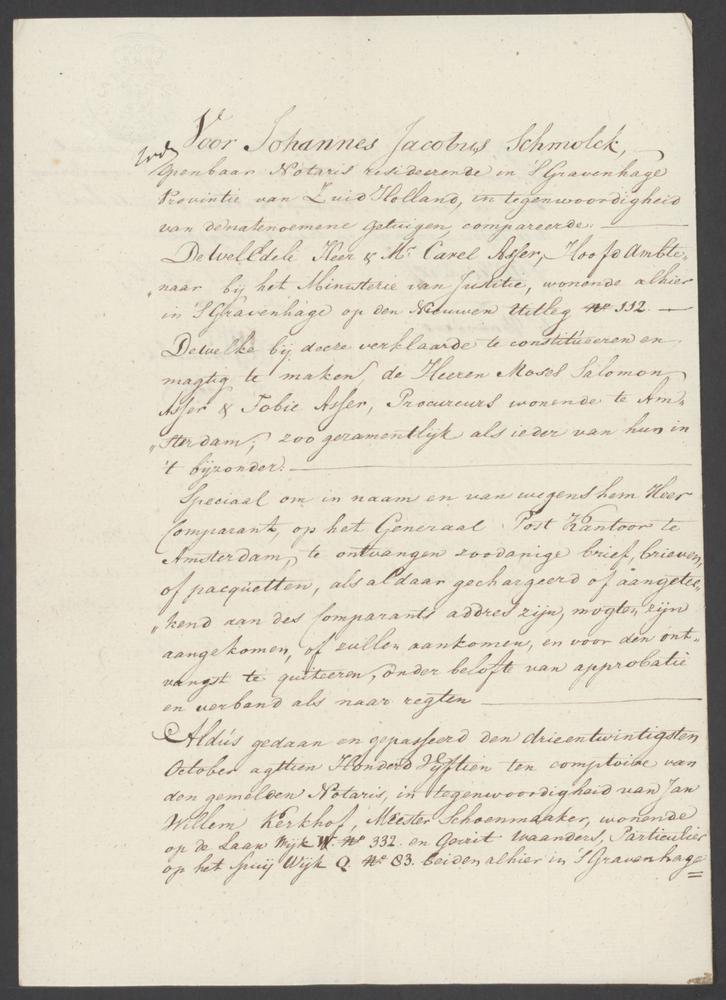 Voor Johannes Jacobus Schmolck,
Openbaar Notaris resideerende in 'S Gravenhage
Provintie van Zuid Holland, in tegenwoordigheid
van de natenoemene getuigen, compareerde:
De Wel Edele Heer & Mr. Carel Asser, Hoofd Ambte„
„naar bij het Ministerie van Justitie, wonende alhier
in 'S Gravenhage op den Nieuwen Uitleg No 112.
Dewelke bij deeze verklaarde te constitueeren en
magtig te maken, de Heeren Moses Salomon
Asser & Tobie Asser, Procureurs wonende te Am„
„sterdam; zoo gezamentlijk als ieder van hun in
't bijzonder.
Speciaal om in naam en van wegens hem Heer
Comparant, op het Generaal Post Kantoor te
Amsterdam, te ontvangen zoodanige brief, brieven,
of pacquetten, als aldaar gechargeerd of aangetee„
„kend aan des Comparants addres zijn, mogten zijn
aangekomen, of zullen aankomen, en voor den ont„
vangst te quiteeren, onder belofte van approbatie
en verband als naar regten
Aldus gedaan en gepasseerd den drieentwintigsten
October agttien Honderd Vijftien ten comptoire van
den gemelden Notaris, in tegenwoordigheid van Jan
Willem Kerkhof, Meester Schoenmaaker, wonende
op de Laan Wijk W. No 332. en Gerrit Waanders, Particulier
op het Spuij Wijk Q No 83. beiden alhier in 'S Gravenhage